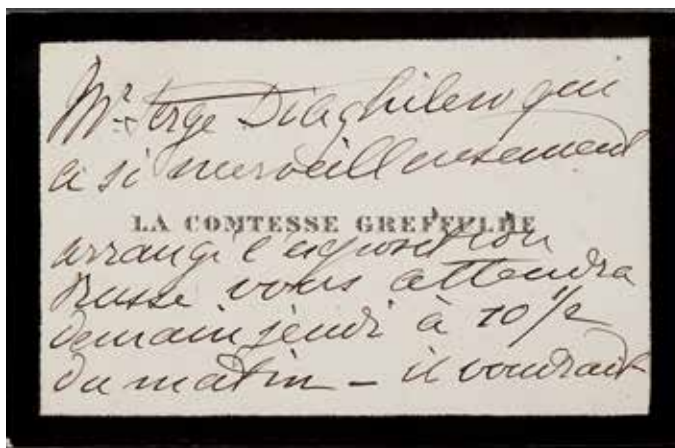 Mr. Serge Diaghilew qui
a si merveilleusement
LA COMTESSE GREFFULHE
arrangé l'exposition
Russe vous attendra
demain jeudi à 10 1/2
du matin – il voudrait